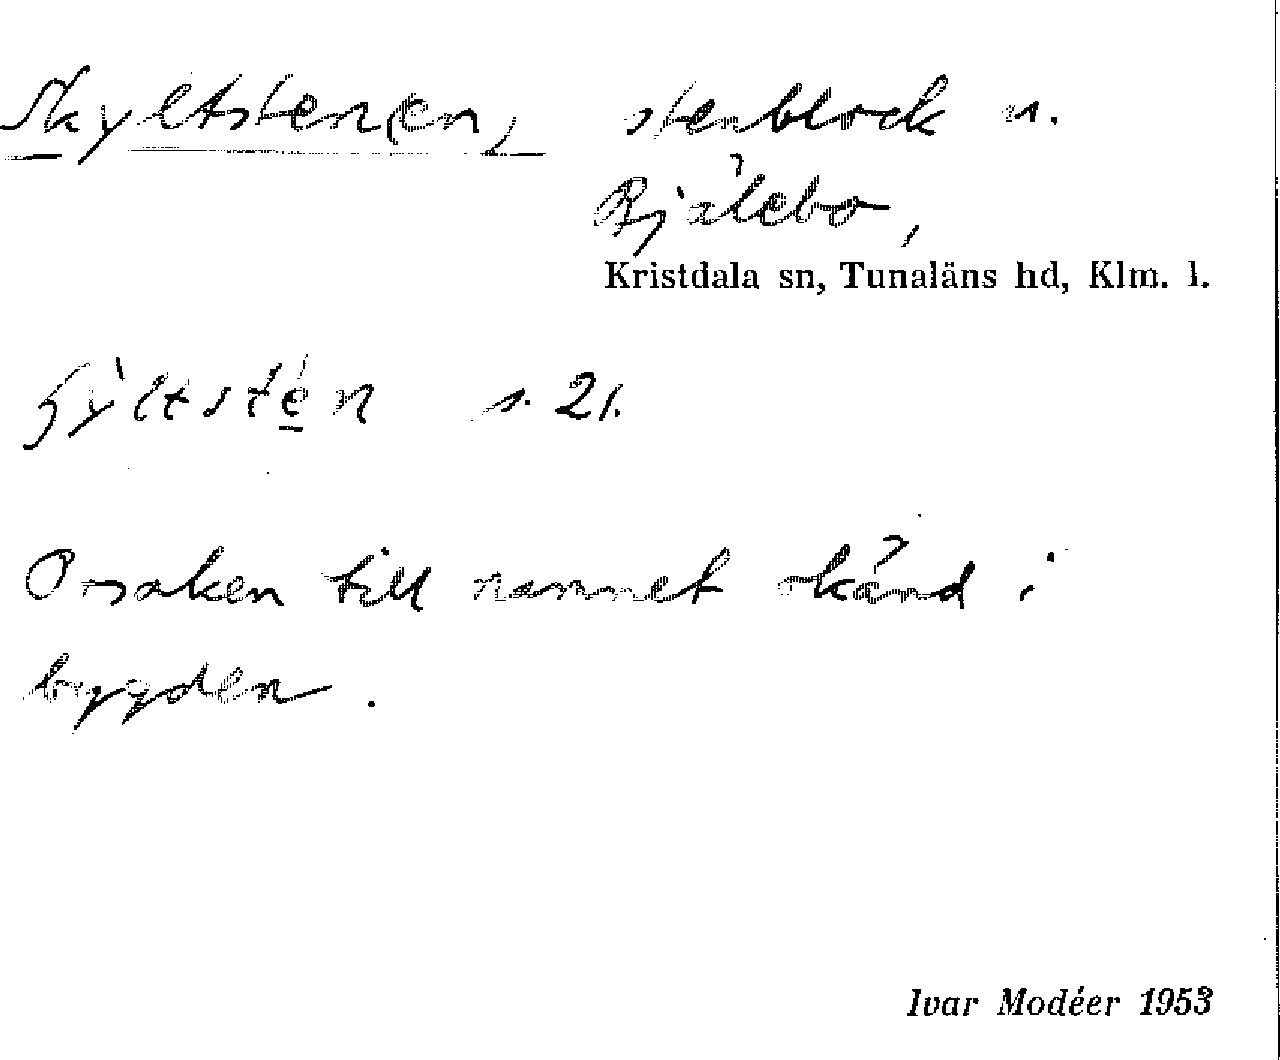 Skyltsten(en, stenblock n.
Bjälebo,
Kristdala sn, Tunaläns hd, Klm. l.
s. 21.
Orsaken till namnet okänd i
bygden.
Ivar Modéer 1953